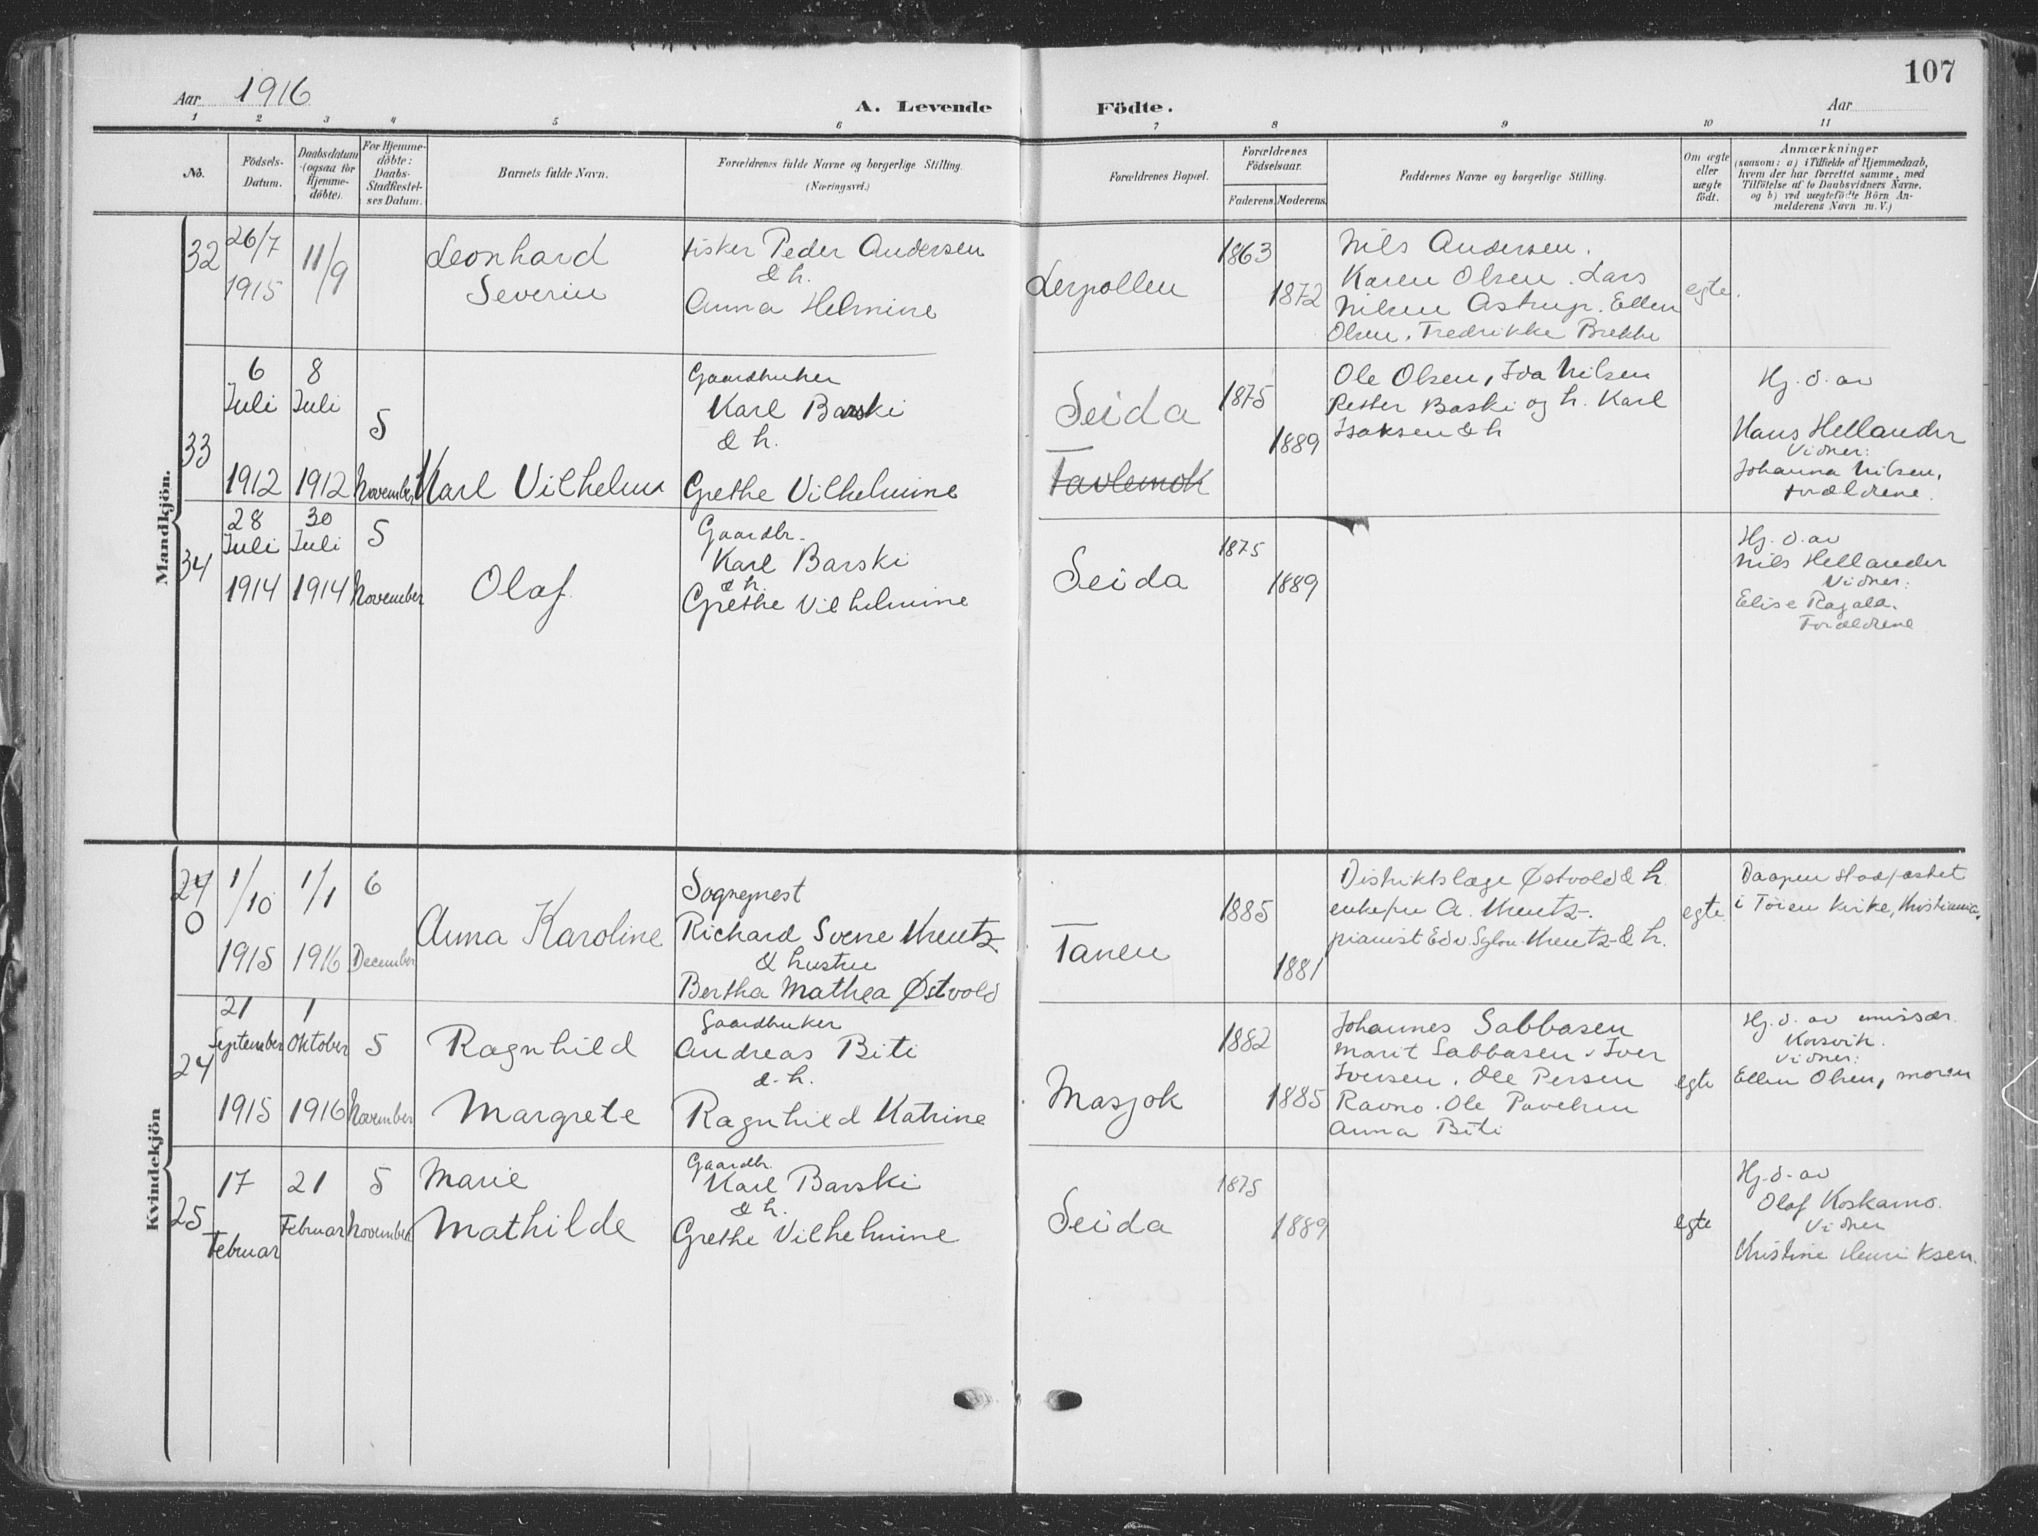 107
Aar 1916
A. Levende Födte.
Aar
1 2 3 4 5 6 7 8 9 10 11
No.
Födsels-
Datum.
Daabsdatum
(ogsaa for
Hjemme-
döbte).
For Hjemme-
döbte:
Daabs-
Stadfæstel-
ses Datum.
Barnets fulde Navn.
Forældrenes fulde Navne og borgerlige Stilling.
(Næringsvei.)
Forældrenes Bopæl.
Forældrenes
Födselsaar.
Faderens. Moderens.
Faddernes Navne og borgerlige Stilling.
Om ægte
eller
uægte
födt.
Anmærkninger
(saasom: a) i Tilfælde af Hjemmedaab,
hvem der har forrettet samme, med
Tilföielse af to Daabsvidners Navne.
og b) ved uægtefödte Börn An-
melderens Navn m. V.)
Mandkjön.
32
26/7
1915
11/9
Leonhard
Severin
Fisker Peder Andersen
& h.
Anna Helmine
Lerpollen
1863
1872
Nils Andersen.
Karen Olsen. Lars
Nilsen Astrup. Ellen
Olsen. Fredrikke Brekke
egte.
33
6
Juli
1912
8
Juli
1912
5
November
Karl Vilhelm
Gaardbruker
Karl Barski
& h.
Grethe Vilhelmine
Seida
Tavlemok
1875
1889
Ole Olsen, Ida Nilsen
Petter Baski og h. Karl
Isaksen & h
Hj. d. av
Hans Hellander
Vidner:
Johanna Nilsen,
forældrene.
34
28
Juli
1914
30
Juli
1914
5
November
Olaf
Gaardbr.
Karl Barski
& h.
Grethe Vilhelmine
Seida
1875
1889
Hj. d. av
Nils Hellander
Vidner:
Elise Ragala.
Forældrene
Kvindekjön
0
1/10
1915
1/1
1916
6
December
Anna Karoline
Sogneprest
Richard Svene Kreutz
& hustru
Bertha Mathea Østvold
Tanen
1885
1881
Distriktslæge Østvold & h.
enkefru A. Kreutz.
pianist Edv. Sylou-Kreutz & h.
egte.
Daapen stadfæstet
i Tøien kirke, Kristiania.
24
21
September
1915
1
Oktober
1916
5
November
Ragnhild
Margrete
Gaardbruker
Andreas Biti
& h.
Ragnhild Katrine
Masjok
1882
1885
Johannes Sabbasen
Marit Sabbasen. Iver
Iversen. Ole Persen
Ravno. Ole Pavelsen
Anna Biti
egte
Hj. d. av emissær.
Korsvik.
Vidner:
Ellen Olsen, moren
25
17
Februar
21
Februar
5
November
Marie
Mathilde
Gaardbr.
Karl Barski
& h.
Grethe Vilhelmine
Seida
1875
1889
egte
Hj. d. av
Olaf Koskamo.
Vidner
Kristine Henriksen.